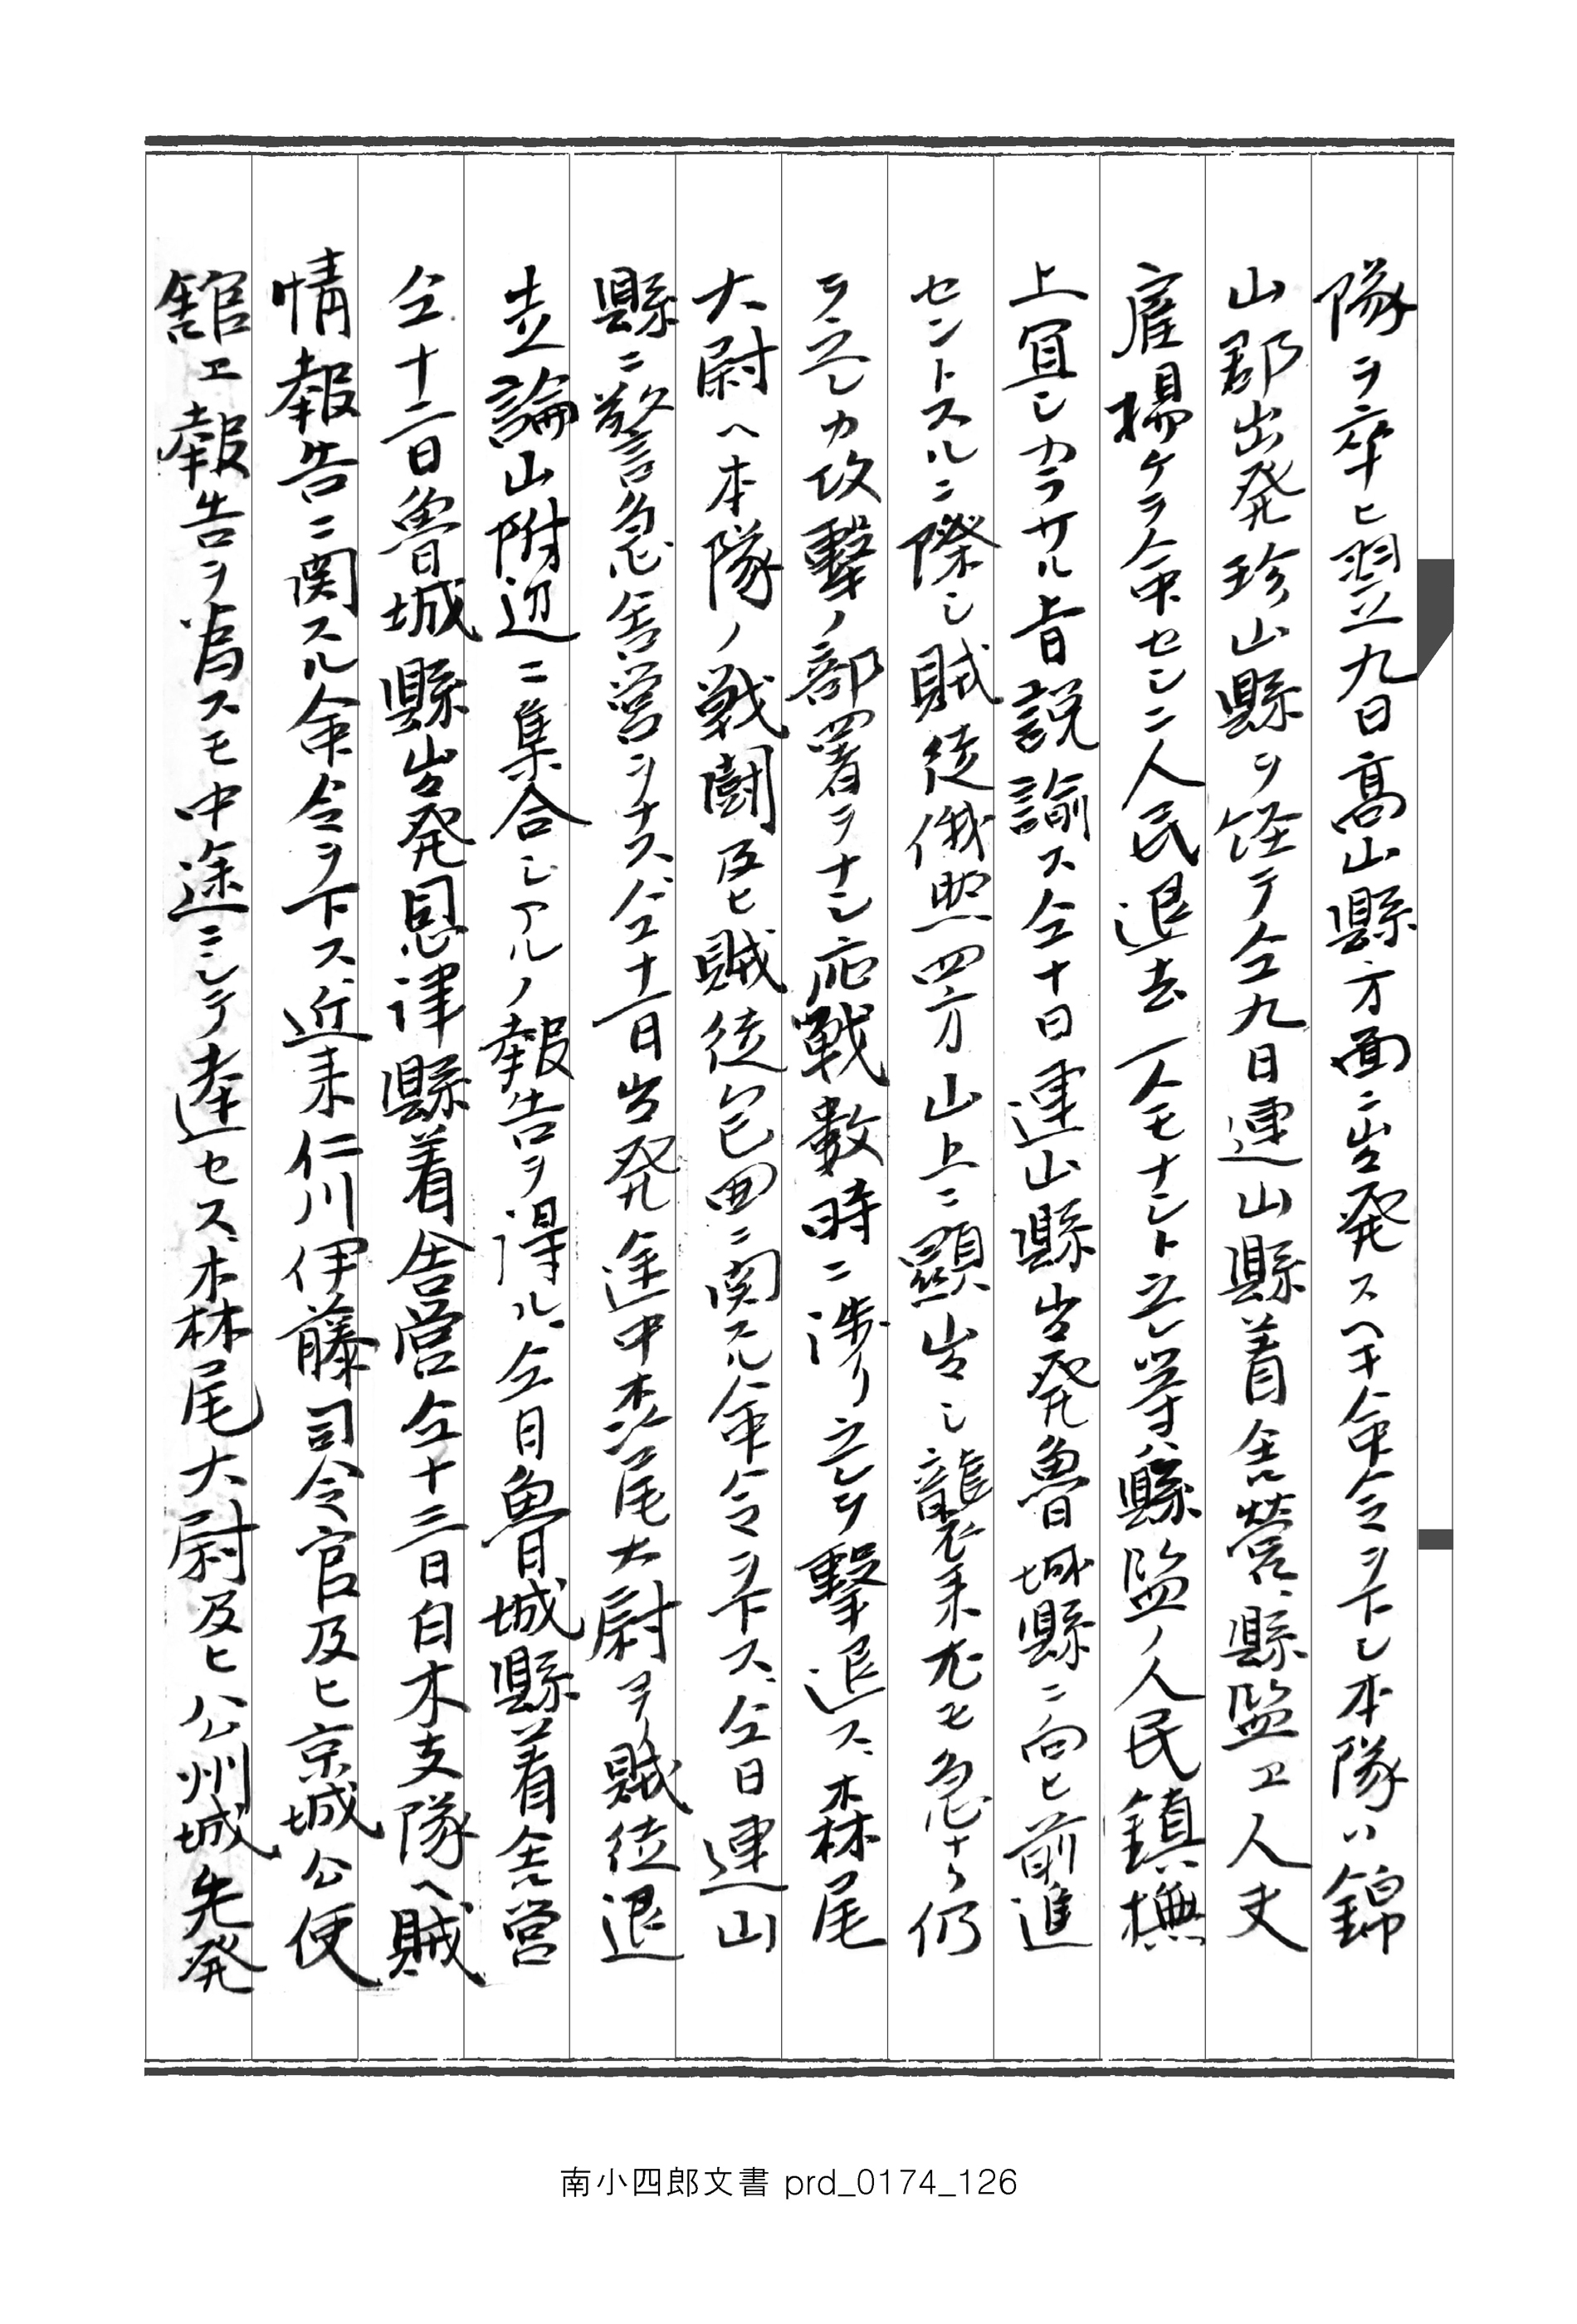 隊ヲ卒ヒ翌廿九日髙山縣方面ニ出発スヘキ命令ヲ下シ本隊ハ錦
山郡出発珍山縣ヲ経テ仝九日連山縣着舎営縣監エ人夫
雇揚ケヲ命セシニ人民退去一人モナシト云等縣監ノ人民鎮撫
上宜シカラサル旨説諭ス仝十日連山縣出発魯城縣ニ向ヒ前進
セントスルニ際シ賊徒俄然四方山上ニ顕出シ襲来尤モ急ナリ仍
ヲ之レカ攻撃ノ部署ヲナシ応戦数時ニ渉リ之ヲ撃退ス森尾
大尉ヘ本隊ノ戦闘及ヒ賊徒包囲ニ関スル命令ヲ下ス仝日連山
縣ニ警急舎営ヲナス仝十一日出発途中森尾大尉ヨリ賊徒退
走論山附近ニ集合シアルノ報告ヲ得ル仝日魯城縣着舎営
仝十二日魯城縣出発恩津縣着舎営仝十三日白木支隊ヘ賊
情報告ニ関スル命令ヲ下ス近来仁川伊藤司令官及ヒ京城公使
舘エ報告ヲ為スモ中途ニシテ達セス森尾大尉及ヒ公州城先発
南小四郎文書 prd_0174_126